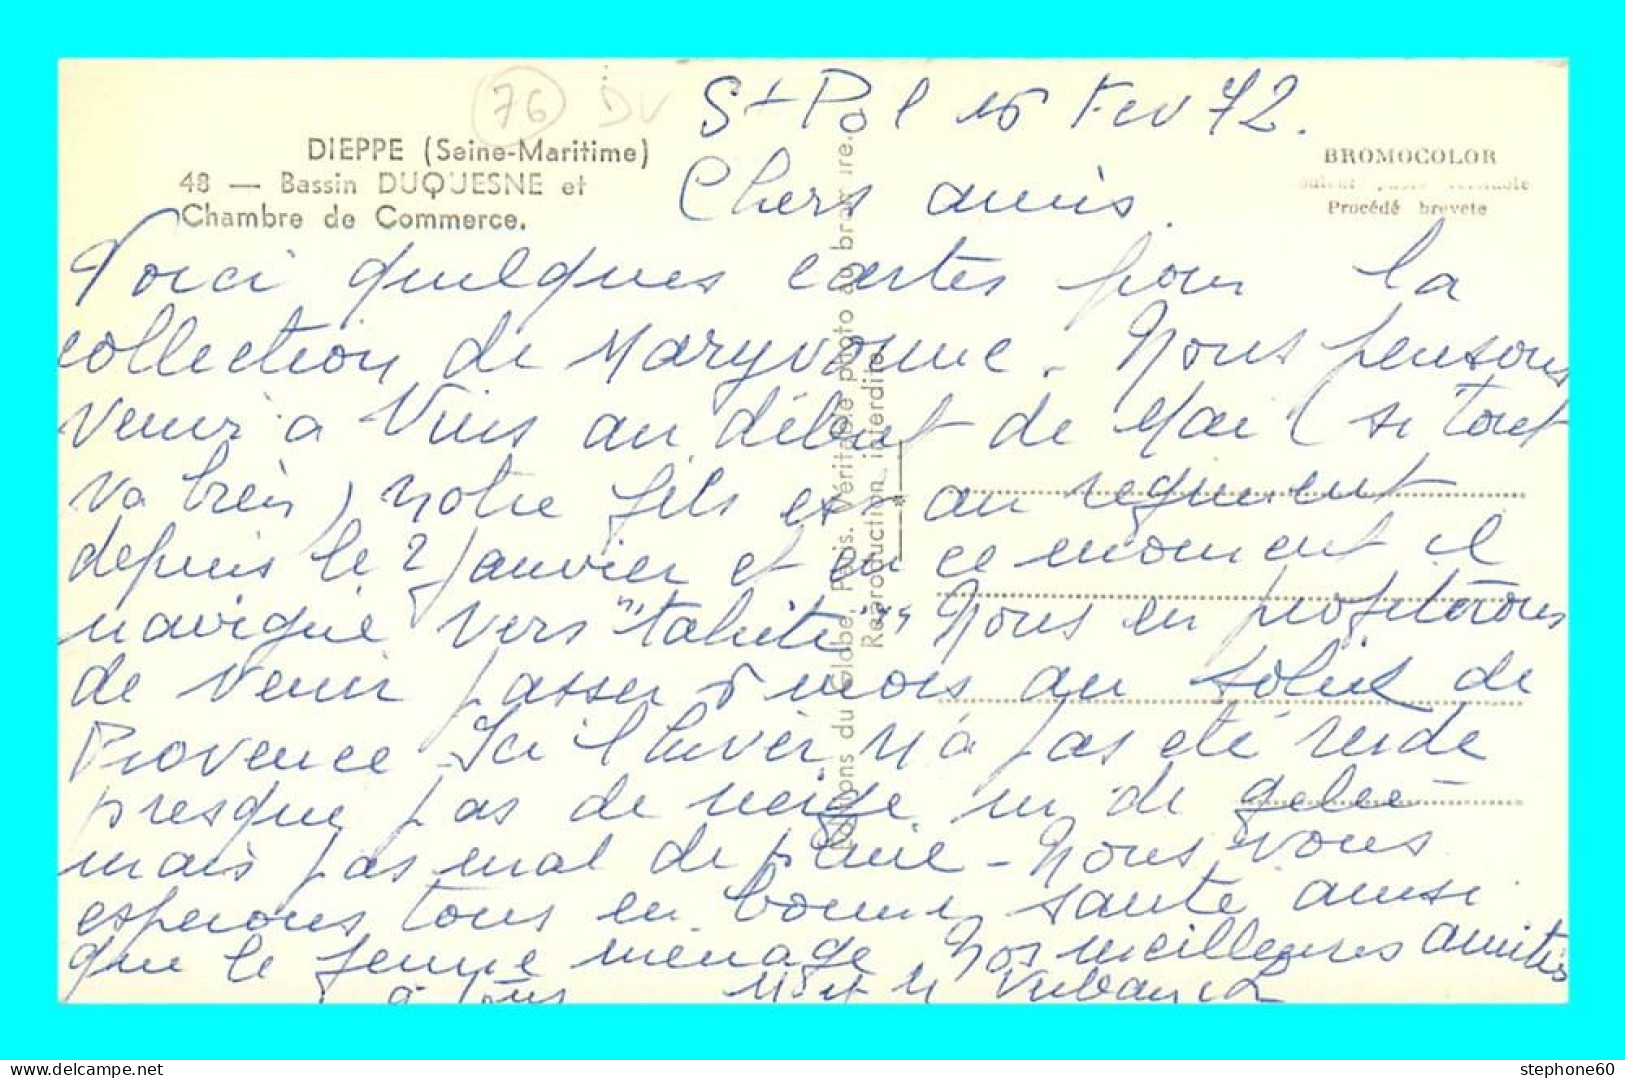 76 DV
DIEPPE (Seine-Maritime)
48 — Bassin DUQUESNE et
Chambre de Commerce.
BROMOCOLOR
Procédé breveté
Editions du Globe, Paris. Véritable photo au bromure.
Reproduction interdite
St Pol 16 Fev 72.
Chers amis.
Voici quelques cartes pour la
collection de Maryvonne. Nous pensons
venir à Vins au début de Mai (si tout
va bien) notre fils est au regiment
depuis le 2 Janvier et en ce moment il
navigue vers "tahiti" Nous en profiterons
de venir passer mois au soleil de
Provence. Ici l'hiver n'a pas été rude
presque pas de neige ni de gelée -
mais pas mal de pluie - Nous vous
esperons tous en bonne santé ainsi
que le jeune ménage Nos meilleures amitiés
à tous Mr et M
stephone60